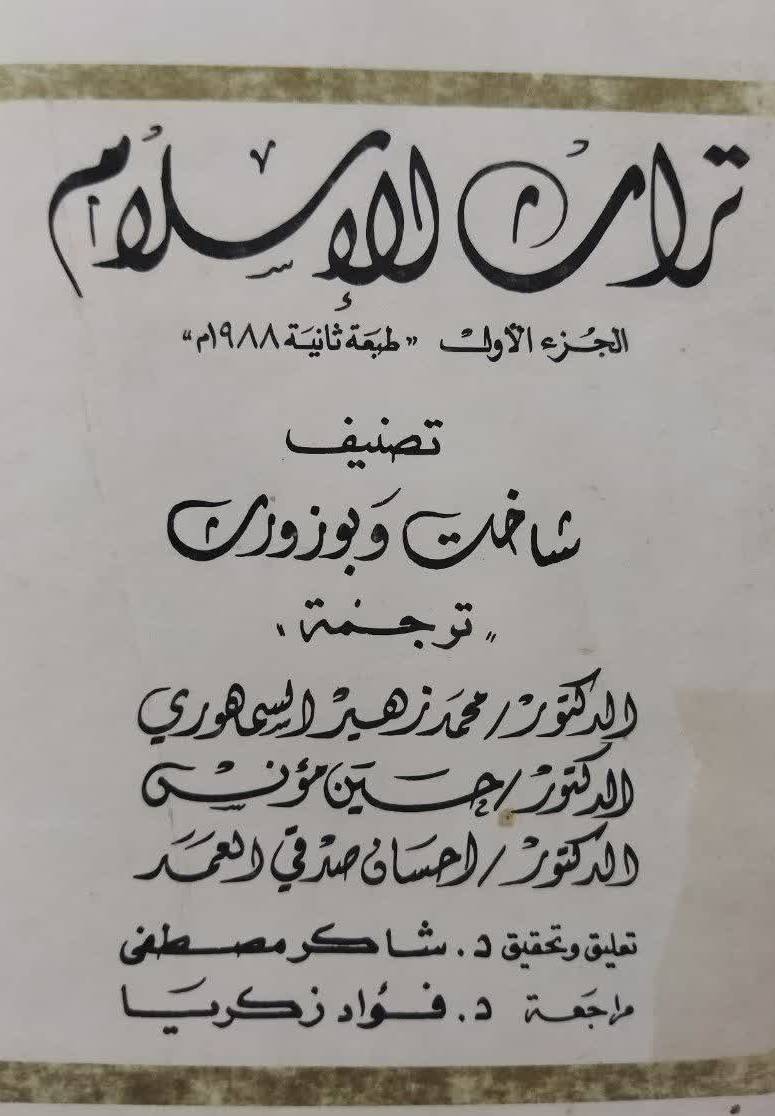 تراث الإسلام
الجزء الأول "طبعة ثانية ١٩٨٨م"
تصنيف
شاخت وبوزورث
"ترجمة"
الدكتور/محمد زهير السمهوري
الدكتور/حسين مؤنس
الدكتور/احسان صدقي العمد
تعليق وتحقيق د. شاكر مصطفى
مراجعة د. فؤاد زكريا